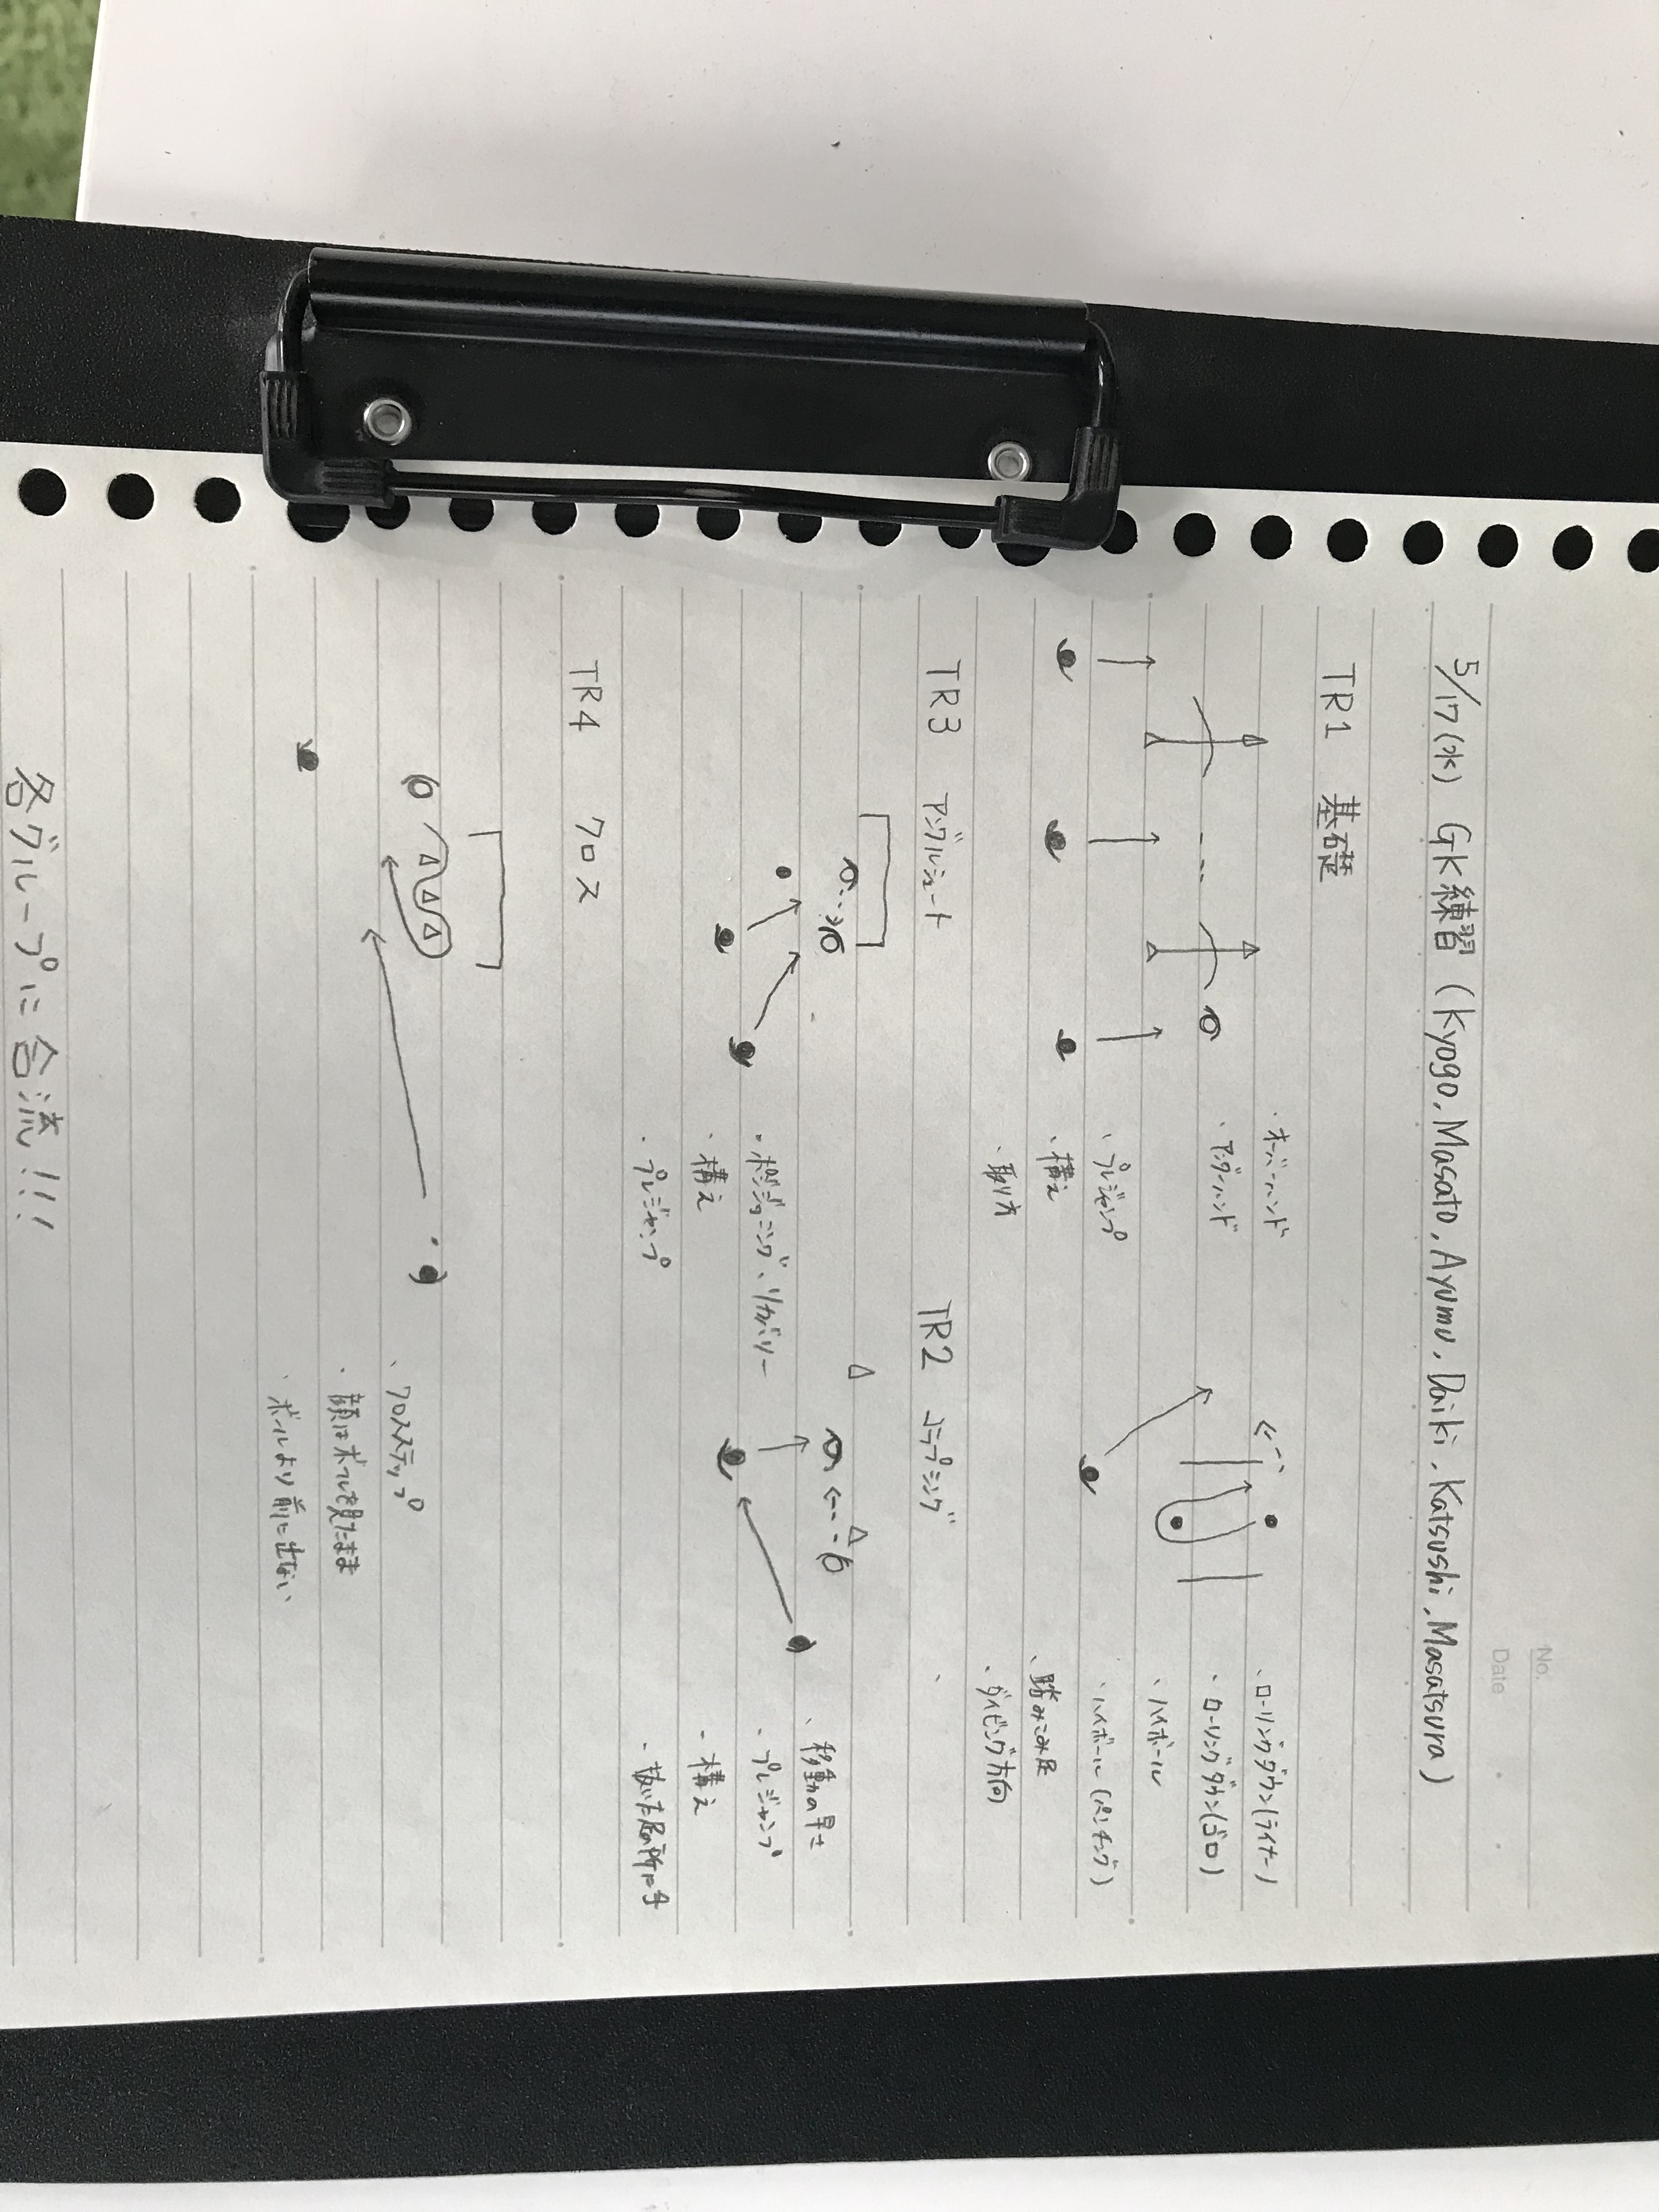 No.
Date
5/17(水) GK練習 (Kyogo, Masato, Ayumu, Daiki, Katsushi, Masatsura)
TR1 基礎
・オーバーハンド
・アンダーハンド
・プレジャンプ
・構え
・取り方
・ローリングダウン(ライナー)
・ローリングダウン(ゴロ)
・ハイボール
・ハイボール(パンチング)
・踏みこみ足
・ダイビング方向
TR3 アングルシュート
・ポジショニング、リカバリー
・構え
・プレジャンプ
TR2 コラプシング
・移動の早さ
・プレジャンプ
・構え
・抜いた足の所に手
TR4 クロス
・クロスステップ
・顔はボールを見たまま
・ボールより前に出ない
各グループに合流!!!